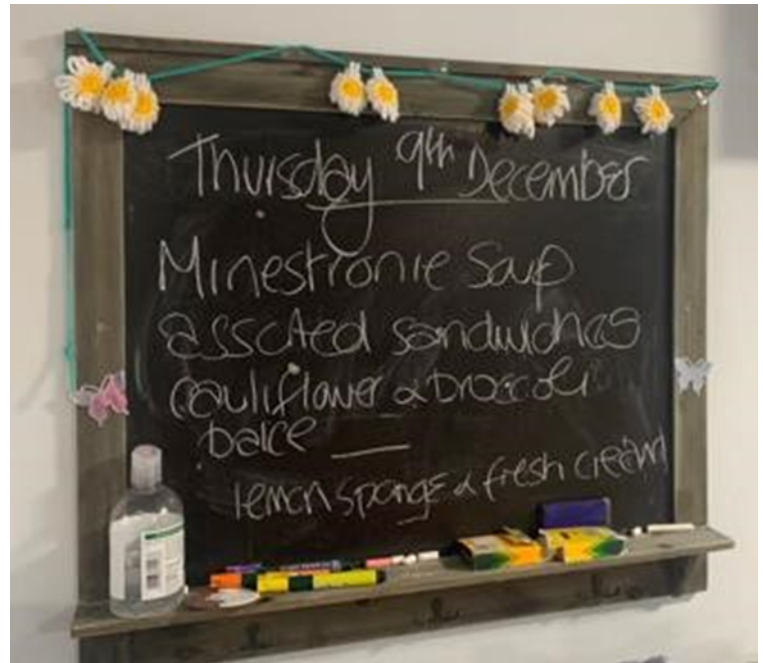 Thursday 9th December
Minestronie Soup
assorted sandwiches
cauliflower & broccoli
bake
lemon sponge & fresh cream